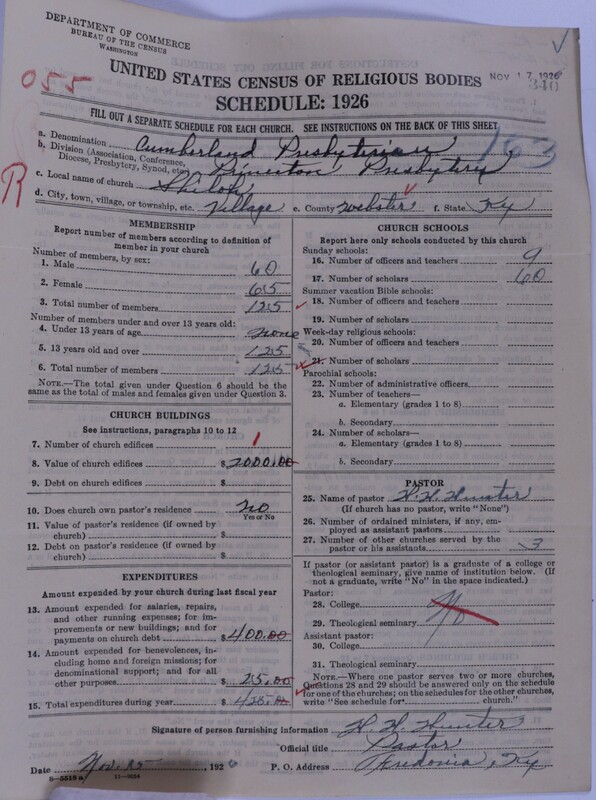 DEPARTMENT OF COMMERCE
BUREAU OF THE CENSUS
WASHINGTON
NOV 17 1926
340
055
UNITED STATES CENSUS OF RELIGIOUS BODIES
SCHEDULE: 1926
FILL OUT A SEPARATE SCHEDULE FOR EACH CHURCH. SEE INSTRUCTIONS ON THE BACK OF THIS SHEET
153
R
a. Denomination Cumberland Presbyterian
b. Division (Association, Conference, Diocese, Presbytery, Synod, etc.) Princeton Presbytery
c. Local name of church Shiloh
d. City, town, village, or township, etc. Village e. County Webster f. State Ky
MEMBERSHIP
Report number of members according to definition of
member in your church
Number of members, by sex:
1. Male 60
2. Female 65
3. Total number of members 125
Number of members under and over 13 years old:
4. Under 13 years of age none
5. 13 years old and over 125
6. Total number of members 125
NOTE.—The total given under Question 6 should be
same as the total of males and females given under Question 3.
CHURCH BUILDINGS
See instructions, paragraphs 10 to 12
7. Number of church edifices 1
8. Value of church edifices $2000.00
9. Debt on church edifices $
10. Does church own pastor's residence? no
Yes or No
11. Value of pastor's residence (if owned by
church) $
12. Debt on pastor's residence (if owned by
church) $
EXPENDITURES
Amount expended by your church during last fiscal year
13. Amount expended for salaries, repairs,
and other running expenses; for im-
provements or new buildings; and for
payments on church debt $400.00
14. Amount expended for benevolences, in-
cluding home and foreign missions; for
denominational support; and for all
other purposes $25.00
15. Total expenditures during year $425.00
CHURCH SCHOOLS
Report here only schools conducted by this church
Sunday schools:
16. Number of officers and teachers 9
17. Number of scholars 60
Summer vacation Bible schools:
18. Number of officers and teachers
19. Number of scholars
Week-day religious schools:
20. Number of officers and teachers
21. Number of scholars
Parochial schools:
22. Number of administrative officers
23. Number of teachers—
a. Elementary (grades 1 to 8)
b. Secondary
24. Number of scholars—
a. Elementary (grades 1 to 8)
b. Secondary
PASTOR
25. Name of pastor H. H. Hunter
(If church has no pastor, write "None")
26. Number of ordained ministers, if any, em-
ployed as assistant pastors
27. Number of other churches served by the
pastor or his assistants 3
If pastor (or assistant pastor) is a graduate of a college or
theological seminary, give name of institution below. (If
not a graduate, write "No" in the space indicated.)
Pastor:
28. College No
29. Theological seminary
Assistant pastor:
30. College
31. Theological seminary
NOTE.—Where one pastor serves two or more churches,
Questions 28 and 29 should be answered only on the schedule
for one of the churches; on the schedules for the other churches,
write "See schedule for church."
Signature of person furnishing information H. H. Hunter
Official title Pastor
Date Nov. 15, 1926 P. O. Address Fredonia, Ky
8—5518 a 11—9024